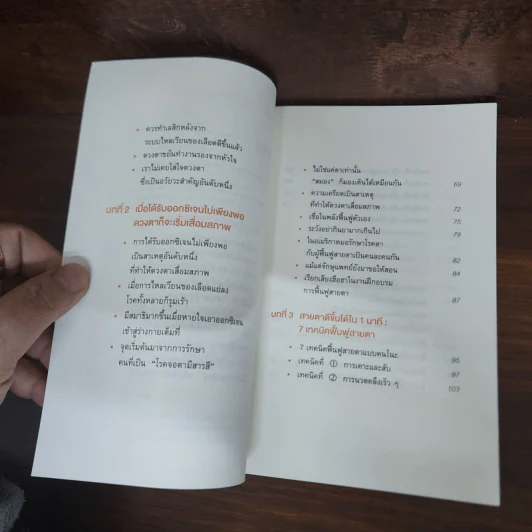 • ควรทำเลสิกหลังจาก
ระบบไหลเวียนของเลือดดีขึ้นแล้ว
• ดวงตาขยันทำงานรองจากหัวใจ
• เราไม่เคยใส่ใจดวงตา
ซึ่งเป็นอวัยวะสำคัญอันดับหนึ่ง
บทที่ 2 เมื่อได้รับออกซิเจนไม่เพียงพอ
ดวงตาก็จะเริ่มเสื่อมสภาพ
• การได้รับออกซิเจนไม่เพียงพอ
เป็นสาเหตุอันดับหนึ่ง
ที่ทำให้ดวงตาเสื่อมสภาพ
• เมื่อการไหลเวียนของเลือดแย่ลง
โรคทั้งหลายก็รุมเร้า
• มีสมาธิมากขึ้นเมื่อหายใจเอาออกซิเจน
เข้าสู่ร่างกายเต็มที่
• จุดเริ่มต้นมาจากการรักษา
คนที่เป็น "โรคจอตามีสารสี"
• ไม่ใช่แค่ตาเท่านั้น
"สมอง" ก็มองเห็นได้เหมือนกัน 69
• ความเครียดเป็นสาเหตุ
ที่ทำให้ดวงตาเสื่อมสภาพ 72
• เชื่อในพลังฟื้นฟูตัวเอง 75
• ระวังอย่ากินยามากเกินไป 79
• ในอเมริกาหมอรักษาโรคตา
กับผู้ฟื้นฟูสายตาเป็นคนละคนกัน 82
• แม้แต่จักษุแพทย์ยังมาขอให้สอน 84
• เรียกเสียงฮือฮาในงานฝึกอบรม
การฟื้นฟูสายตา 87
บทที่ 3 สายตาดีขึ้นได้ใน 1 นาที :
7 เทคนิคฟื้นฟูสายตา
• 7 เทคนิคฟื้นฟูสายตาแบบคนโนะ 95
• เทคนิคที่ ① การเคาะและสับ 97
• เทคนิคที่ ② การนวดคลึงเร็ว ๆ 103